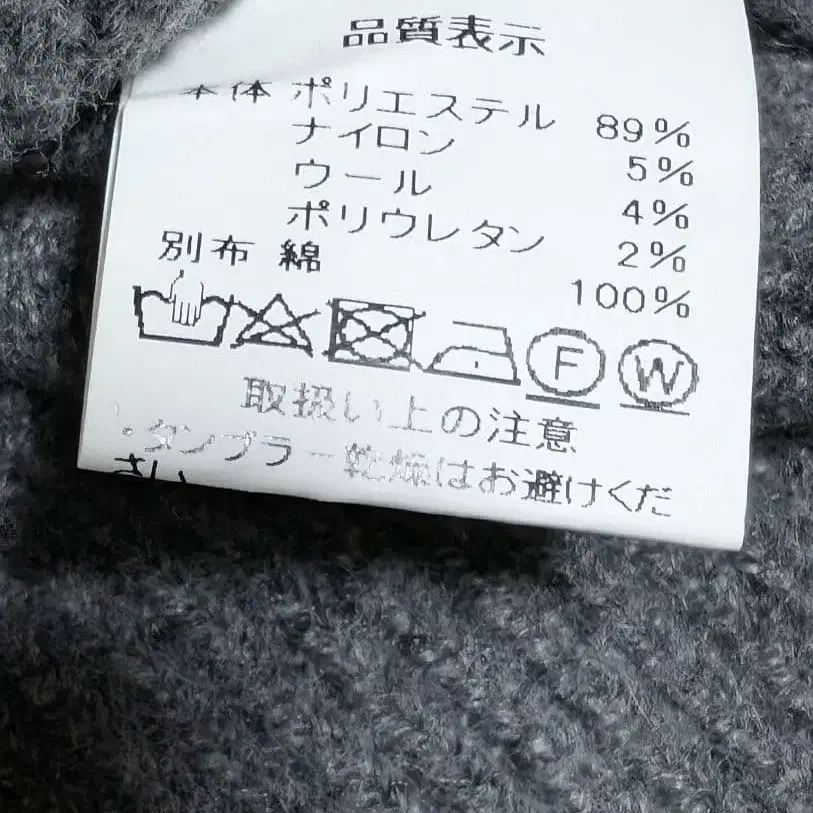 品質表示
本体 ポリエステル 89%
ナイロン 5%
ウール 4%
ポリウレタン 2%
別布 綿 100%
F W
取扱い上の注意
・タンブラー乾燥はお避けくだ
さい